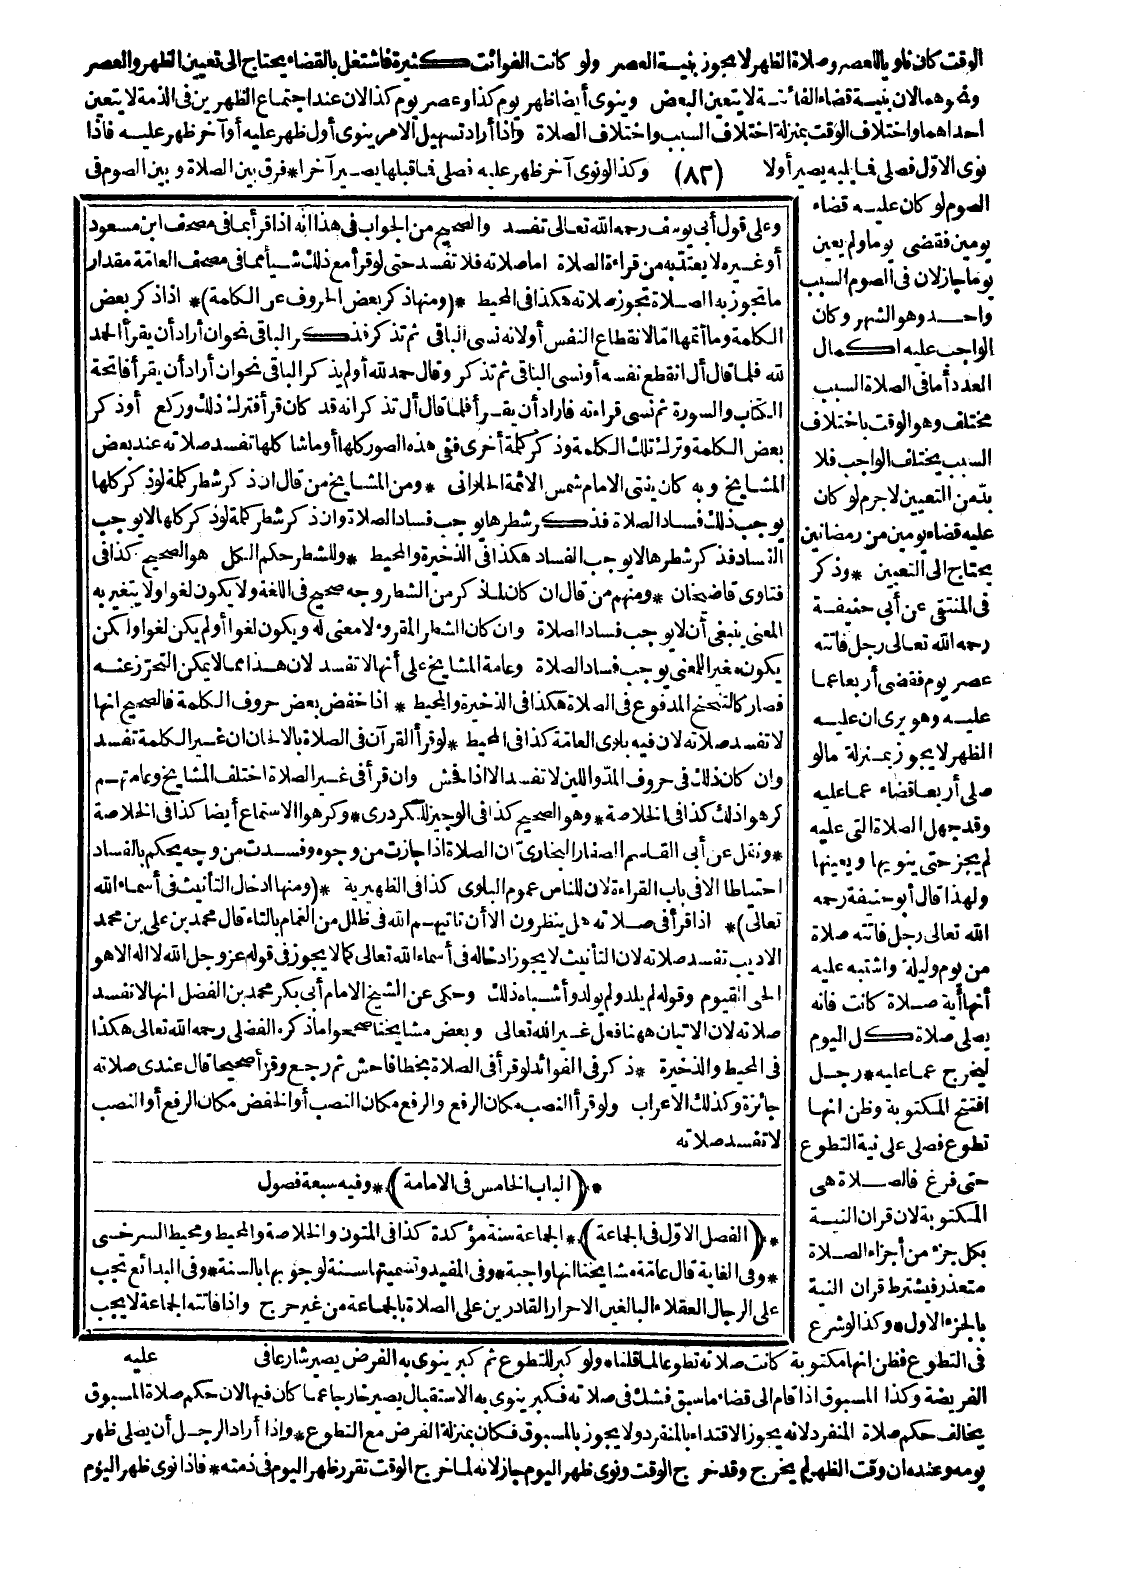 الوقت كان ناويا للعصر وصلاة الظهر لا يجوز بنية العصر ولو كانت الفوائت كثيرة فاشتغل بالقضاء يحتاج الى تعيين الظهر والعصر
ونحوهما لان بنية قضاء الفائتة لا يتعين البعض وينوى أيضا ظهر يوم كذا وعصر يوم كذا لان عند اجتماع الظهرين فى الذمة لا يتعين
احداهما واختلاف الوقت بمنزلة اختلاف السبب واختلاف الصلاة واذا أراد تسهيل الامر ينوى أول ظهر عليه أو آخر ظهر عليه فاذا
نوى الاوّل فصلى فما يليه يصير أولا (٨٣) وكذا لو نوى آخر ظهر عليه فصلى فما قبلها يصير آخرا * فرق بين الصلاة وبين الصوم فى
الصوم لو كان عليه قضاء
يومين فقضى يوما ولم يعين
يوما جاز لان فى الصوم السبب
واحد وهو الشهر وكان
الواجب عليه اكمال
العدد أما فى الصلاة السبب
مختلف وهو الوقت باختلاف
السبب يختلف الواجب فلا
بدّ من التعيين لاجرم لو كان
عليه قضاء يومين من رمضانين
يحتاج الى التعيين * وذكر
فى المنتقى عن أبى حنيفة
رحمه الله تعالى رجل فاتته
عصر يوم فقضى أربعا عما
عليه وهو يرى ان عليه
الظهر لا يجوز بمنزلة مالو
صلى أربعا قضاء عما عليه
وقد جهل الصلاة التى عليه
لم يجز حتى ينويها ويعينها
ولهذا قال أبو حنيفة رحمه
الله تعالى رجل فاتته صلاة
من يوم وليلة واشتبه عليه
أنها أية صلاة كانت فانه
يصلى صلاة كل اليوم
ليخرج عما عليه * رجل
افتتح المكتوبة وظن انها
تطوع فصلى على نية التطوع
حتى فرغ فالصلاة هى
المكتوبة لان قران النية
بكل جزء من أجزاء الصلاة
متعذر فيشترط قران النية
بالجزء الاول * وكذا لو شرع
وعلى قول أبى يوسف رحمه الله تعالى تفسد والصحيح من الجواب فى هذا انه اذا قرأ بما فى مصحف ابن مسعود
أو غيره لا يعتدّ به من قراءة الصلاة اما صلاته فلا تفسد حتى لو قرأ مع ذلك شيأ مما فى مصحف العامّة مقدار
ما تجوز به الصلاة تجوز صلاته هكذا فى المحيط * (ومنها ذكر بعض الحروف عن الكلمة) * اذا ذكر بعض
الكلمة وما أتمها امّا لانقطاع النفس أو لانه نسى الباقى ثم تذكر فذكر الباقى نحو ان أراد أن يقرأ الحمد
لله فلما قال أل انقطع نفسه أو نسى الباقى ثم تذكر وقال حمد لله أو لم يذكر الباقى نحو ان أراد أن يقرأ فاتحة
الكتاب والسورة ثم نسى قراءته فاراد أن يقرأ فلما قال أل تذكر انه قد كان قرأ فترك ذلك وركع أو ذكر
بعض الكلمة وترك تلك الكلمة وذكر كلمة أخرى ففى هذه الصور كلها أو ما شاكلها تفسد صلاته عند بعض
المشايخ وبه كان يفتى الامام شمس الائمة الحلوانى * ومن المشايخ من قال ان ذكر شطر كلمة لو ذكر كلها
يوجب ذلك فساد الصلاة فذكر شطرها يوجب فساد الصلاة وان ذكر شطر كلمة لو ذكر كلها لا يوجب
الفساد فذكر شطرها لا يوجب الفساد هكذا فى الذخيرة والمحيط * وللشطر حكم الكل هو الصحيح كذا فى
فتاوى قاضيخان * ومنهم من قال ان كان لما ذكر من الشطر وجه صحيح فى اللغة ولا يكون لغوا ولا يتغير به
المعنى ينبغى أن لا يوجب فساد الصلاة وان كان الشطر المقروء لا معنى له ويكون لغوا أو لم يكن لغوا ولكن
يكون مغيرا للمعنى يوجب فساد الصلاة وعامة المشايخ على أنها لا تفسد لان هذا مما لا يمكن التحرّز عنه
فصار كالتنحنح المدفوع فى الصلاة هكذا فى الذخيرة والمحيط * اذا خفض بعض حروف الكلمة فالصحيح انها
لا تفسد صلاته لان فيه بلوى العامّة كذا فى المحيط * لو قرأ القرآن فى الصلاة بالالحان ان غير الكلمة تفسد
وان كان ذلك فى حروف المدّ واللين لا تفسد الا اذا فحش وان قرأ فى غير الصلاة اختلف المشايخ وعامتهم
كرهوا ذلك كذا فى الخلاصة * وهو الصحيح كذا فى الوجيز للكردرى * وكرهوا الاستماع أيضا كذا فى الخلاصة
* ونقل عن أبى القاسم الصفار البخارى ان الصلاة اذا جازت من وجوه وفسدت من وجه يحكم بالفساد
احتياطا الا فى باب القراءة لان للناس عموم البلوى كذا فى الظهيرية * (ومنها ادخال التأنيث فى أسماء الله
تعالى) * اذا قرأ فى صلاته هل ينظرون الا أن تاتيهم الله فى ظلل من الغمام بالتاء قال محمد بن على بن محمد
الاديب تفسد صلاته لان التأنيث لا يجوز ادخاله فى أسماء الله تعالى كما لا يجوز فى قوله عز وجل الله لا اله الا هو
الحى القيوم وقوله لم يلد ولم يولد وأشباه ذلك وحكى عن الشيخ الامام أبى بكر محمد بن الفضل انها لا تفسد
صلاته لان الاتيان ههنا فعل غير الله تعالى وبعض مشايخنا صححوا ما ذكره الفضلى رحمه الله تعالى هكذا
فى المحيط والذخيرة * ذكر فى الفوائد لو قرأ فى الصلاة بخطا فاحش ثم رجع وقرأ صحيحا قال عندى صلاته
جائزة وكذلك الاعراب ولو قرأ النصب مكان الرفع والرفع مكان النصب أو الخفض مكان الرفع أو النصب
لا تفسد صلاته
* (الباب الخامس فى الامامة) * وفيه سبعة فصول
* (الفصل الاوّل فى الجماعة) * الجماعة سنة مؤكدة كذا فى المتون والخلاصة والمحيط ومحيط السرخسى
* وفى الغاية قال عامّة مشايخنا انها واجبة * وفى المفيد وتسميتها سنة لوجوبها بالسنة * وفى البدائع تجب
على الرجال العقلاء البالغين الاحرار القادرين على الصلاة بالجماعة من غير حرج واذا فاتته الجماعة لا يجب
عليه
فى التطوع فظن انها مكتوبة كانت صلاته تطوعا لما قلنا * ولو كبر للتطوع ثم كبر ينوى به الفرض يصير شارعا فى
الفريضة وكذا المسبوق اذا قام الى قضاء ما سبق فشك فى صلاته فكبر ينوى به الاستقبال يصير خارجا عما كان فيها لان حكم صلاة المسبوق
يخالف حكم صلاة المنفرد لانه يجوز الاقتداء بالمنفرد ولا يجوز بالمسبوق فكان بمنزلة الفرض مع التطوع * واذا أراد الرجل أن يصلى ظهر
يومه وعنده ان وقت الظهر لم يخرج وقد خرج الوقت ونوى ظهر اليوم جاز لانه لما خرج الوقت تقرر ظهر اليوم فى ذمته * فاذا نوى ظهر اليوم